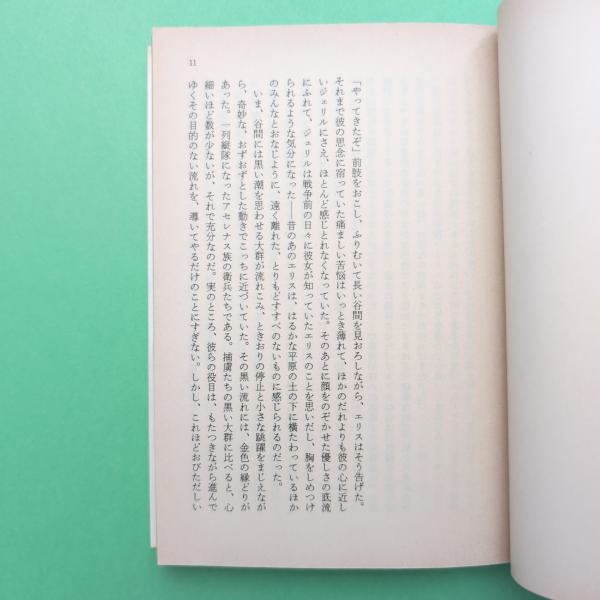 11
「やってきたぞ」前肢をおこし、ふりむいて長い谷間を見おろしながら、エリスはそう告げた。
それまで彼の思念に宿っていた痛ましい苦悩はいっとき薄れて、ほかのだれよりも彼の心に近し
いジェリルにさえ、ほとんど感じとれなくなっていた。そのあとに顔をのぞかせた優しさの底流
にふれて、ジェリルは戦争前の日々に彼女が知っていたエリスのことを思いだし、胸をしめつけ
られるような気分になった――昔のあのエリスは、はるかな平原の土の下に横たわっているほか
のみんなとおなじように、遠く離れた、とりもどすすべのないものに感じられるのだった。
いま、谷間には黒い潮を思わせる大群が流れこみ、ときおりの停止と小さな跳躍をまじえなが
ら、奇妙な、おずおずとした動きでこっちに近づいていた。その黒い流れには、金色の縁どりが
あった。一列縦隊になったアセレナス族の衛兵たちである。捕虜たちの黒い大群に比べると、心
細いほど数が少ないが、それで充分なのだ。実のところ、彼らの役目は、もたつきながら進んで
ゆくその目的のない流れを、導いてやるだけのことにすぎない。しかし、これほどおびただしい